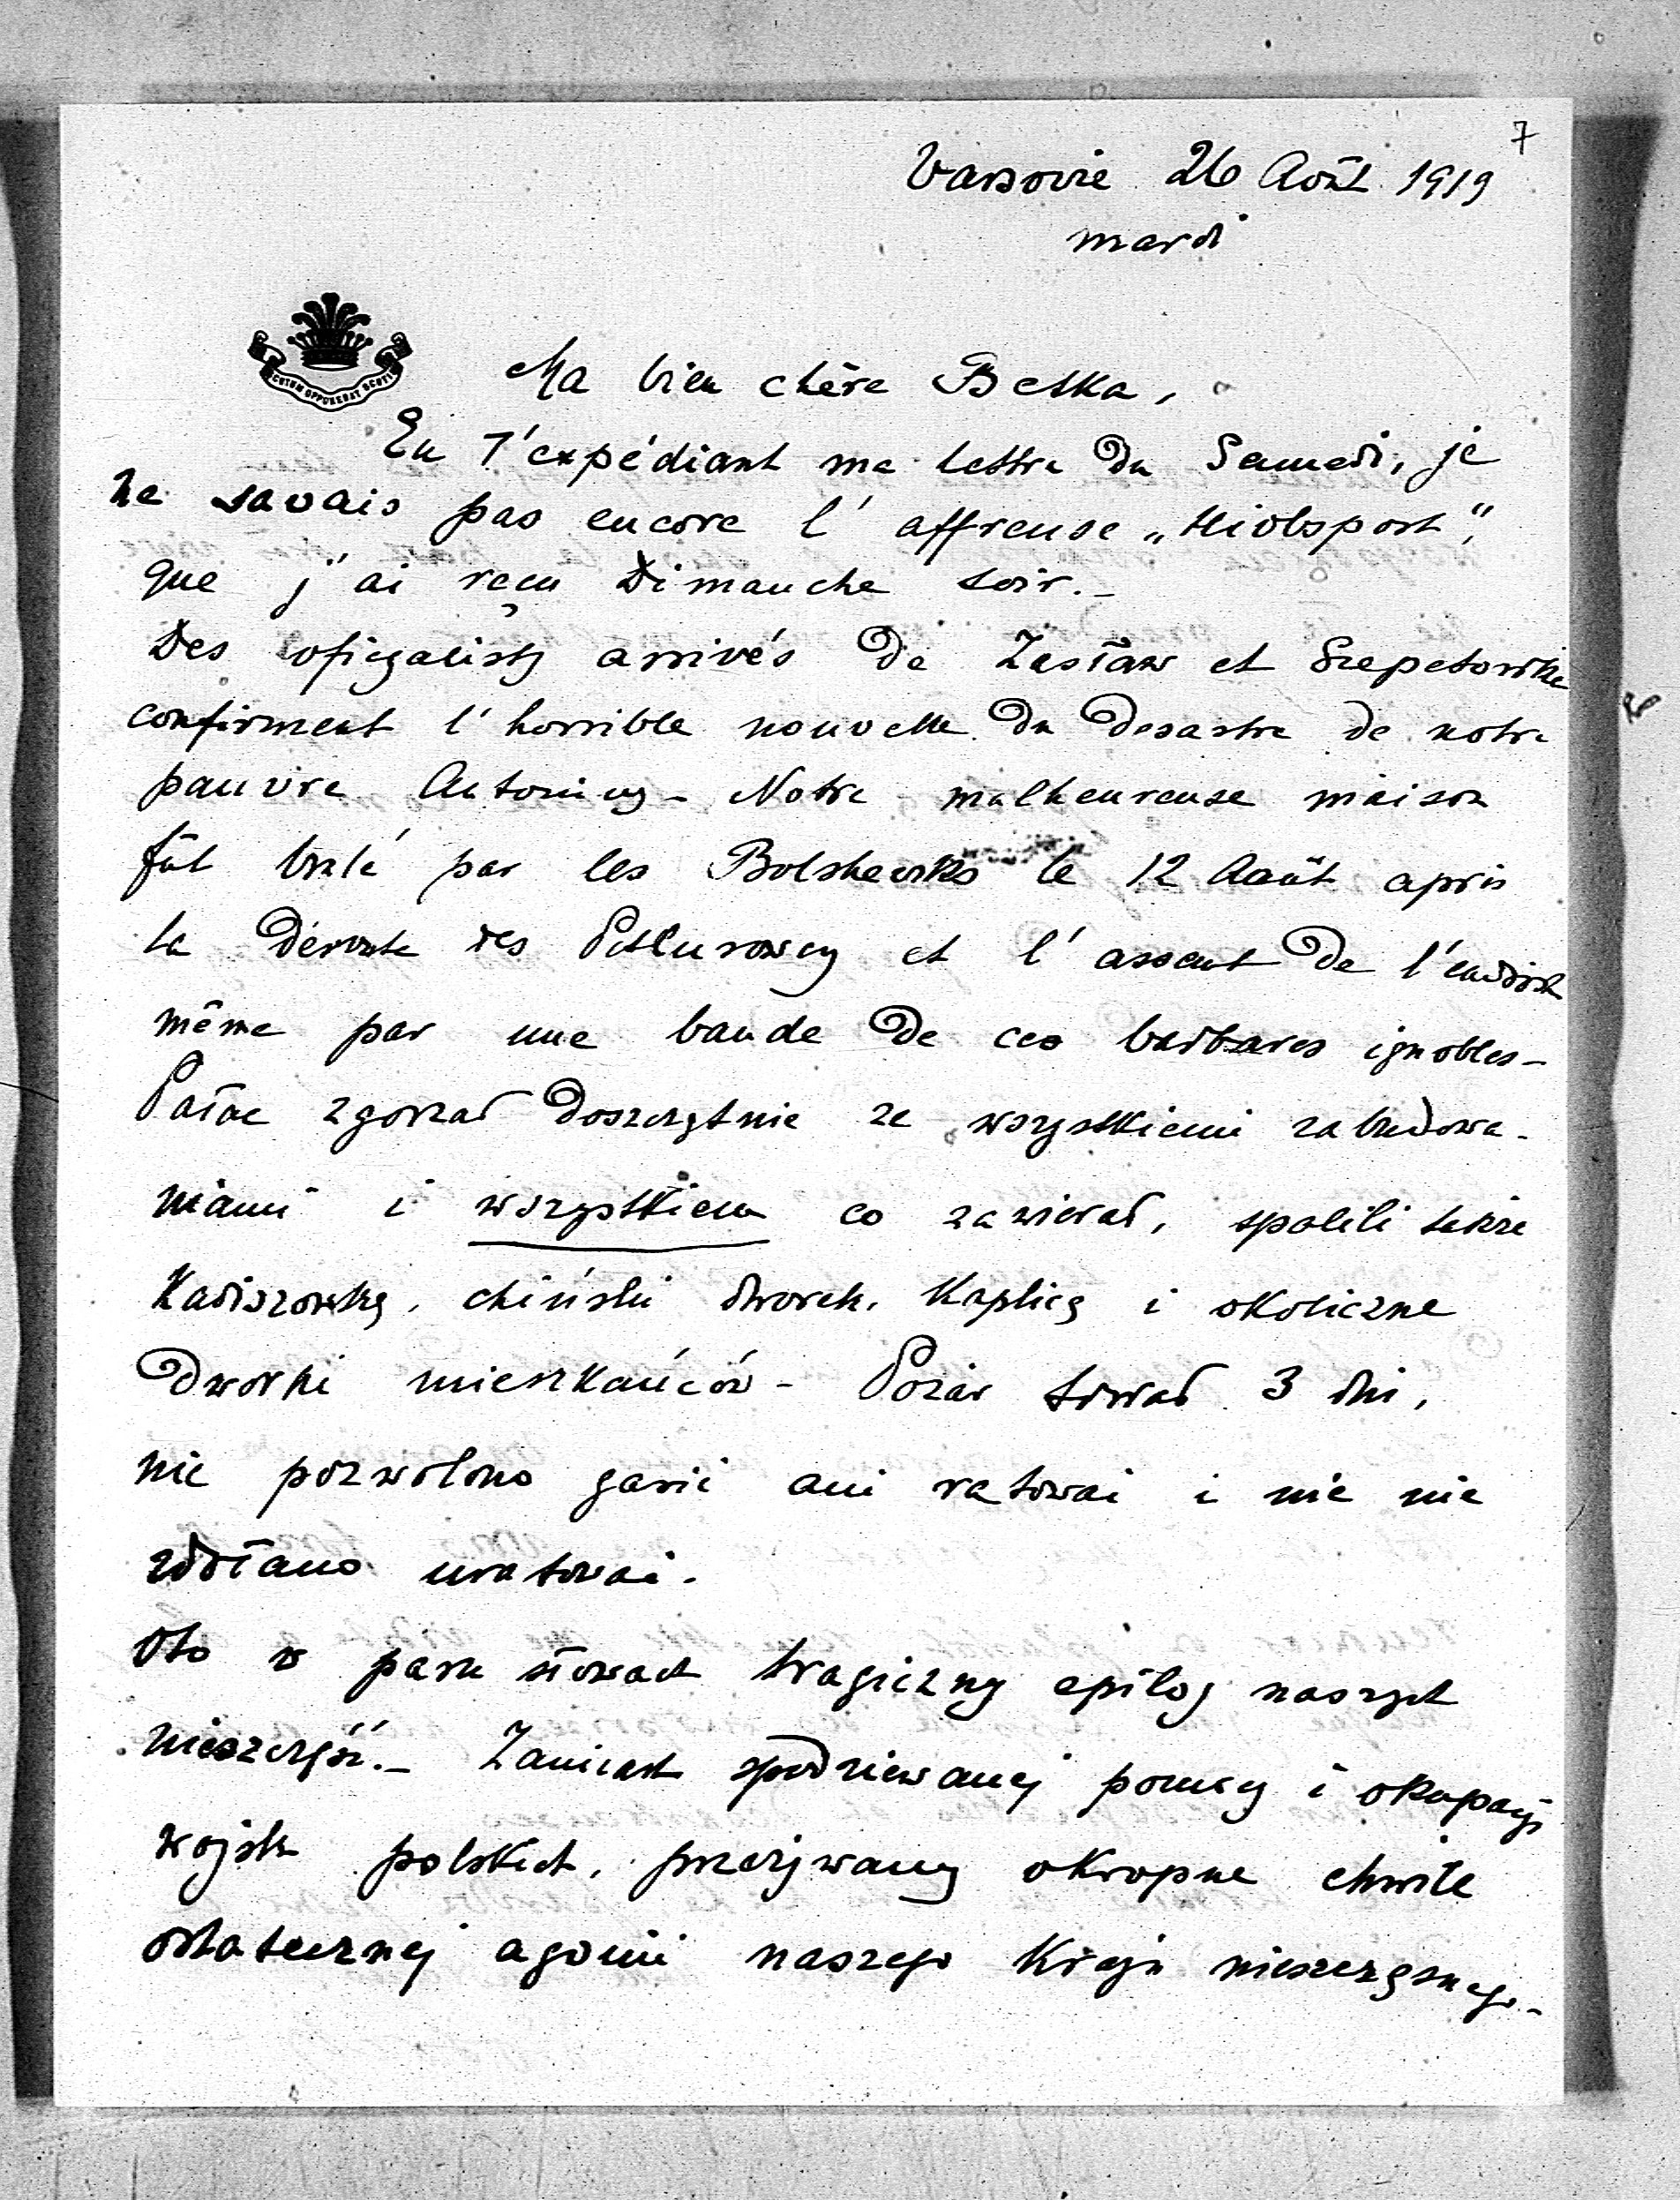 7
Varsovie 26 Août 1919
mardi
Ma bien chère Betka,
En T'expédiant ma lettre du Samedi, je
ne savais pas encore l'affreuse „Hiobspost",
que j'ai reçu Dimanche soir.-
Des oficyalisty arrivés de Zasław et Szepetówka
confirment l'horrible nouvelle du desastre de notre
pauvre Antoniny - Notre malheureuse maison
fût brulé par les Bolsheviks le 12 Août après
la déroute des Petlurowcy et l'assaut de l'endroit
même par une bande de ces barbares ignobles -
Pałac zgorzał doszczętnie ze wszystkiemi zabudowa-
niami i wszystkiem co zawierał, spalili także
Kadiszówkę, chiński dworek, Kaplicę i okoliczne
dworki mieszkańców - Pożar trwał 3 dni,
nie pozwolono gasić ani ratować i nic nie
zdołano uratować.
Oto w paru słowach tragiczny epilog naszych
nieszczęść.- Zamiast spodziewanej pomocy i okupacji
wojsk polskich, przeżywamy okropne chwile
ostatecznej agonii naszego Kraju nieszczęsnego -